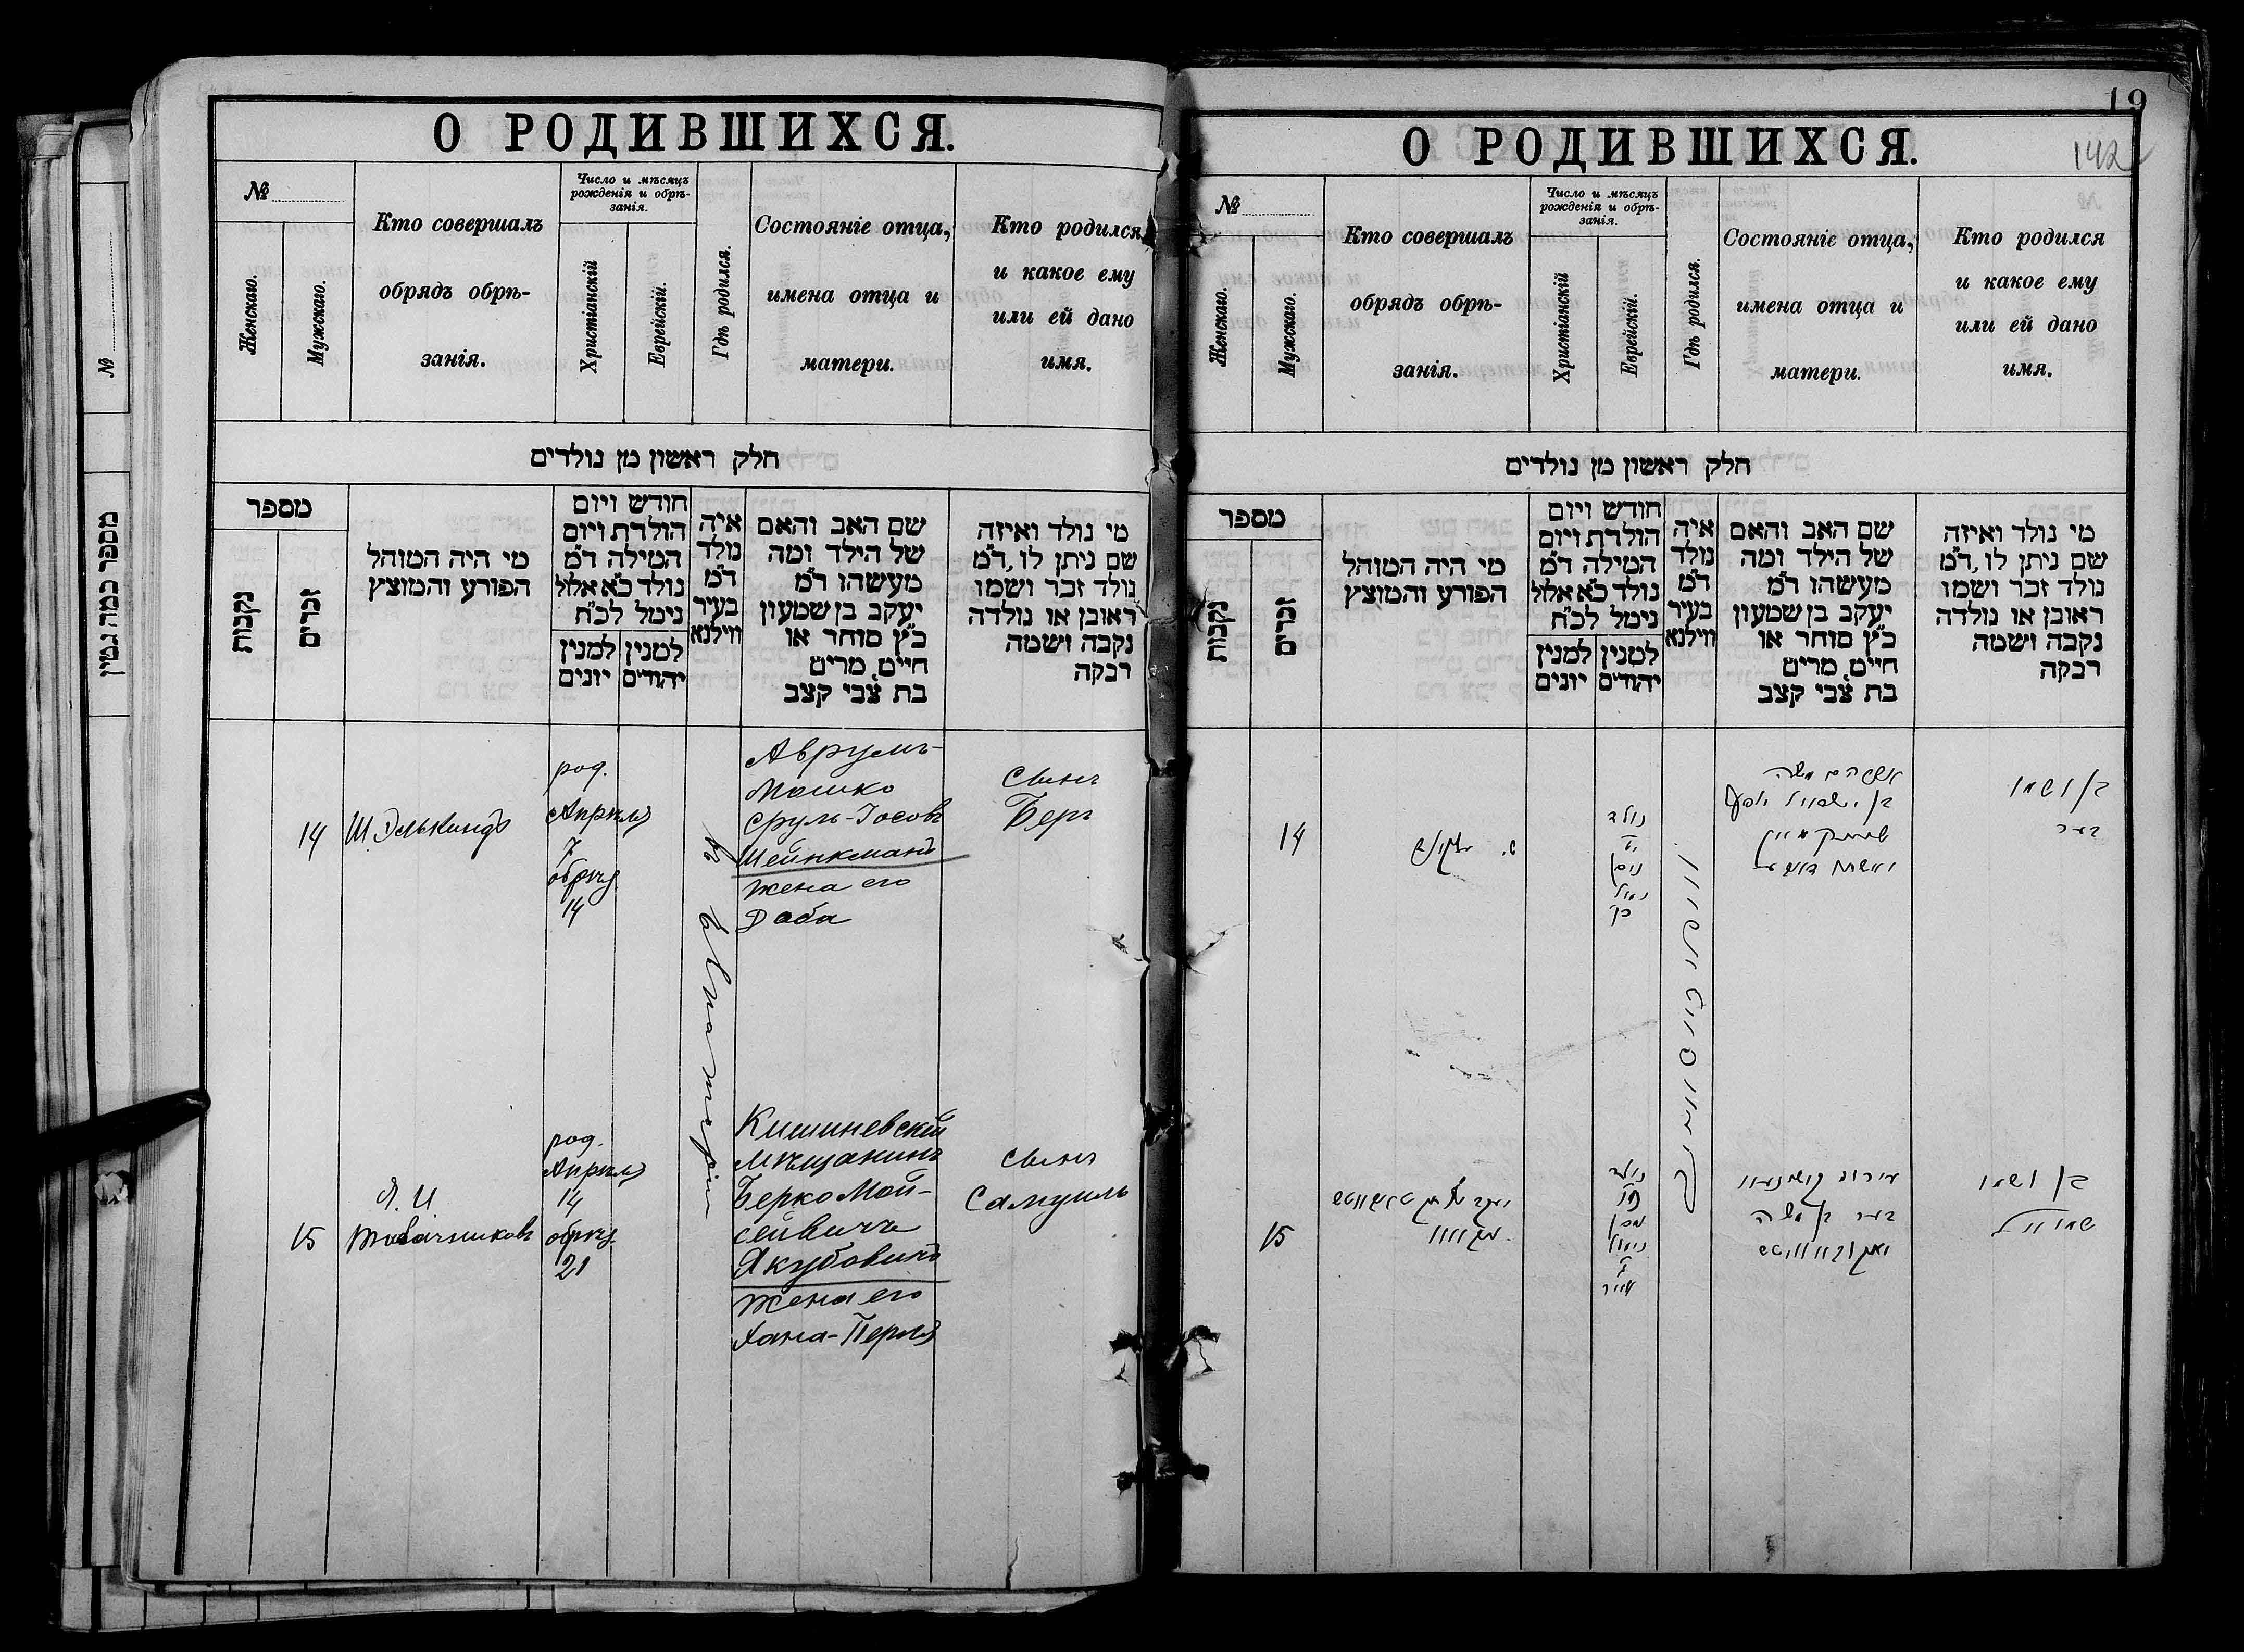 О РОДИВШИХСЯ.
№
Женскаго.
Мужскаго.
Кто совершалъ
обрядъ обрѣ-
занія.
Число и мѣсяцъ
рожденія и обрѣ-
занія.
Христіанскій
Еврейскій.
Гдѣ родился.
Состояніе отца,
имена отца и
матери.
Кто родился
и какое ему
или ей дано
имя.
חלק ראשון מן נולדים
מספר
נקבות
זכרים
מי היה המוהל
הפורע והמוצץ
חודש ויום
הולדת ויום
המילה ד״מ
נולד כ״א אלול
נימל לכ״ח
למנין
יונים
למנין
יהודים
איה
נולד
ד״מ
בעיר
ווילנא
שם האב והאם
של הילד ומה
מעשהו ד״מ
יעקב בן שמעון
כ״ץ סוחר או
חייט, מרים
בת צבי קצב
מי נולד ואיזה
שם ניתן לו, ד״מ
נולד זכר ושמו
ראובן או נולדה
נקבה ושמה
רבקה
14
Ш. Элькиндъ
род.
Апрѣля
7
обрѣз.
14
Аврумъ-
Мошко
Сруль-Іосовъ
Шейнкманъ
жена его
Доба
сынъ
Беръ
15
Я. И.
Табачниковъ
род.
Апрѣля
14
обрѣз.
21
Кишиневскій
мѣщанинъ
Берко Мой-
сеевичъ
Якубовичъ
жена его
Хана-Перля
сынъ
Самуилъ
№
מספר כמה גטין
19
142
О РОДИВШИХСЯ.
№
Женскаго.
Мужскаго.
Кто совершалъ
обрядъ обрѣ-
занія.
Число и мѣсяцъ
рожденія и обрѣ-
занія.
Христіанскій
Еврейскій.
Гдѣ родился.
Состояніе отца,
имена отца и
матери.
Кто родился
и какое ему
или ей дано
имя.
חלק ראשון מן נולדים
מספר
נקבות
זכרים
מי היה המוהל
הפורע והמוצץ
חודש ויום
הולדת ויום
המילה ד״מ
נולד כ״א אלול
נימל לכ״ח
למנין
יונים
למנין
יהודים
איה
נולד
ד״מ
בעיר
ווילנא
שם האב והאם
של הילד ומה
מעשהו ד״מ
יעקב בן שמעון
כ״ץ סוחר או
חייט, מרים
בת צבי קצב
מי נולד ואיזה
שם ניתן לו, ד״מ
נולד זכר ושמו
ראובן או נולדה
נקבה ושמה
רבקה
14
נולד
ניסן
נימול
משה
בן ושמו
בער
15
נולד
נימול
אייר
בער בן משה
בן ושמו
שמואל